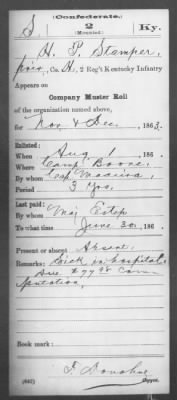 (Confederate.)
S. 2 Ky.
(Mounted.)
H. P. Stamper,
priv., Co. H, 2 Reg't Kentucky Infantry
Appears on
Company Muster Roll
of the organization named above,
for Nov & Dec, 1863.
Enlisted:
When Aug 1, 186 .
Where Camp Boone,
By whom Cap
Period 3 Yrs.
Last paid:
By whom Maj Estep
To what time June 30, 186 .
Present or absent Absent
Remarks: Sick in hospital
Due $ Com
mutation,
Book mark:
(642) T. Donohue
Copyist.